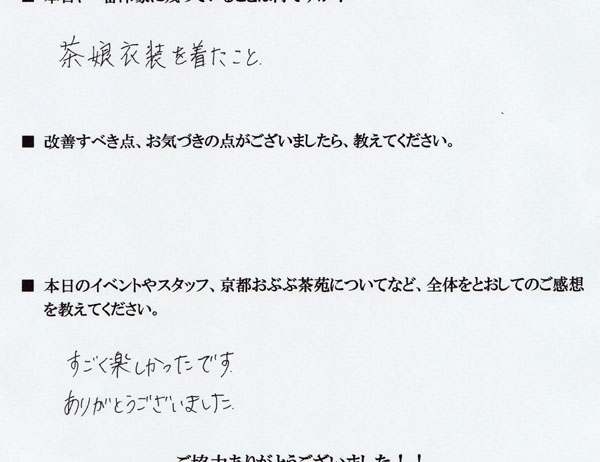 茶娘衣装を着たこと.
■ 改善すべき点、お気づきの点がございましたら、教えてください。
■ 本日のイベントやスタッフ、京都おぶぶ茶苑についてなど、全体をとおしてのご感想
を教えてください。
すごく楽しかったです.
ありがとうございました.
ご協力ありがとうございました！！